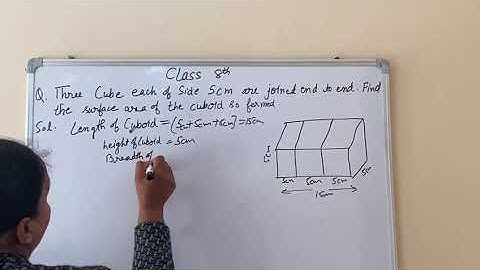 Class 8th
Q. Three Cube each of Side 5cm are joined end to end. Find
the surface area of the cuboid so formed
Sol. Length of Cuboid = (5cm+5cm+5cm) = 15cm
height of Cuboid = 5cm
Breadth of
5cm 5cm 5cm
15cm